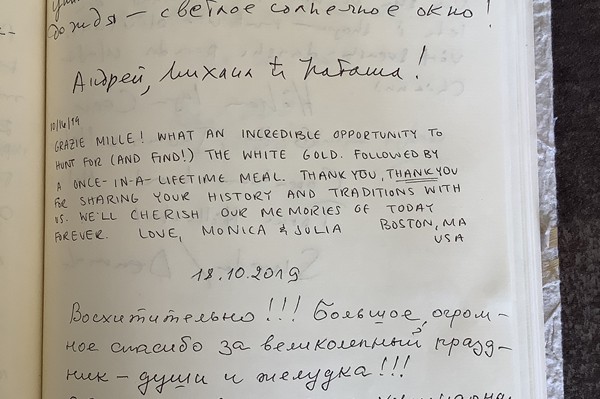 дождя — светлое солнечное окно!
Андрей, Михаил & Наташа!
10/16/19
GRAZIE MILLE! WHAT AN INCREDIBLE OPPORTUNITY TO
HUNT FOR (AND FIND!) THE WHITE GOLD. FOLLOWED BY
A ONCE-IN-A-LIFETIME MEAL. THANK YOU, THANK YOU
FOR SHARING YOUR HISTORY AND TRADITIONS WITH
US. WE'LL CHERISH OUR MEMORIES OF TODAY
FOREVER. LOVE, MONICA & JULIA BOSTON, MA
USA
18.10.2019
Восхитительно!!! Большое, огром-
ное спасибо за великолепный празд-
ник – души и желудка!!!